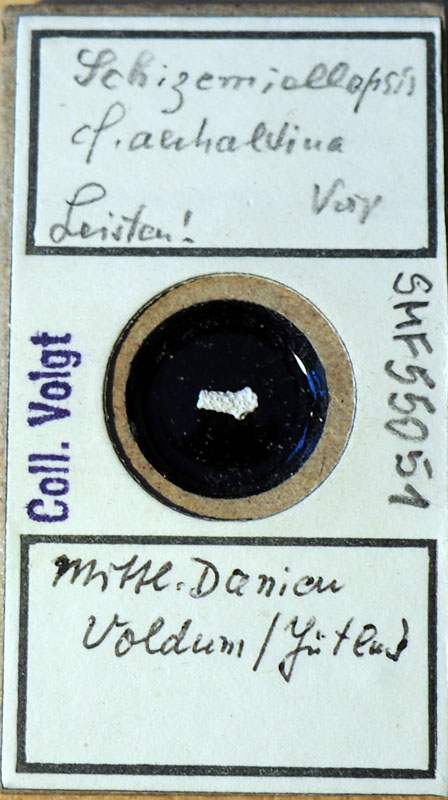 Schizemiellopsis
cf. anhaltina
Var
Leisten!
Coll. Voigt
SMF 55051
Mittl. Danien
Voldum / Jütland